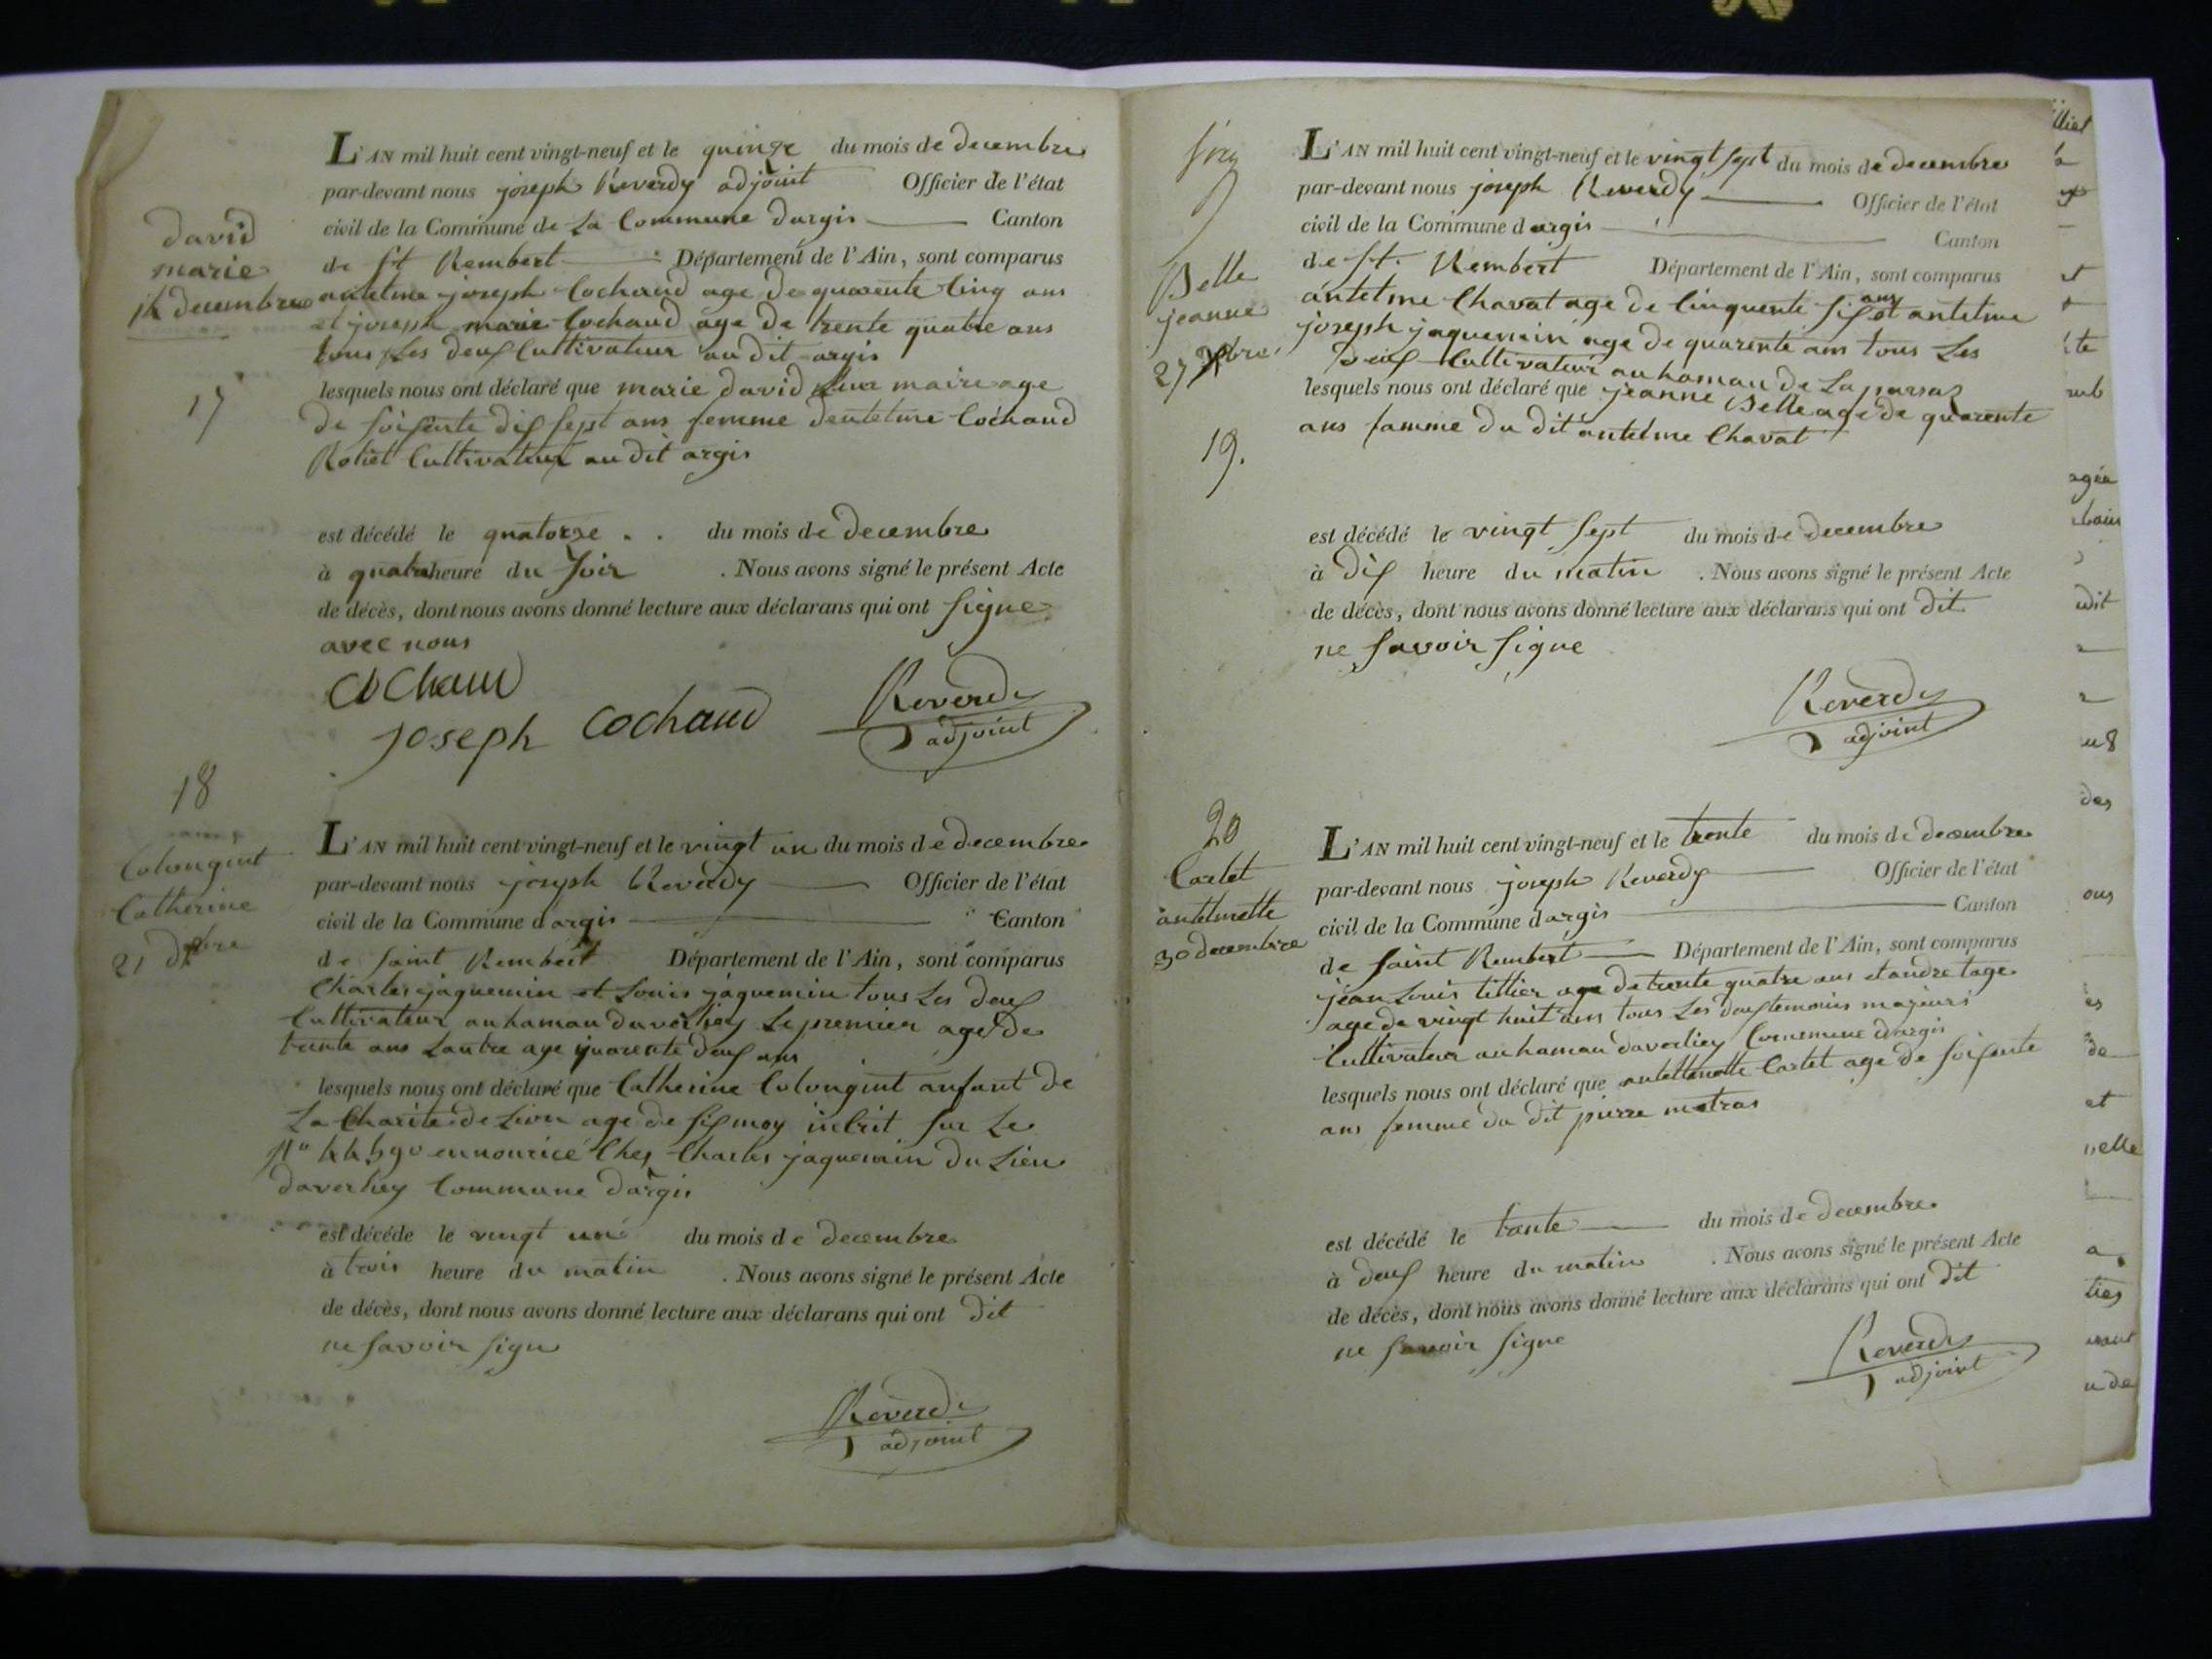 david
marie
14 decembre
17
L'AN mil huit cent vingt-neuf et le quinze du mois de decembre
par-devant nous joseph Reverdy adjoint Officier de l'état
civil de la Commune de La Commune dargis Canton
de st Rembert Département de l'Ain, sont comparus
antelme joseph Cochaud age de quarente Cinq ans
et joseph marie Cochaud age de trente quatre ans
tous Les deux Cultivateur audit argis
lesquels nous ont déclaré que marie david leur maire age
de soisente dix sept ans femme dentelme Cochaud
Roliet Cultivateur audit argis
est décédé le quatorze . . du mois de decembre
à quatre heure du Soir . Nous avons signé le présent Acte
de décès, dont nous avons donné lecture aux déclarans qui ont signe
avec nous
Cochaud
joseph Cochaud Reverdy
adjoint
18
Colongint
Catherine
21 Xbre
L'AN mil huit cent vingt-neuf et le vingt un du mois de decembre
par-devant nous joseph Reverdy Officier de l'état
civil de la Commune dargis Canton
de saint Rembert Département de l'Ain, sont comparus
Charles jaquemin et Louis jaquemin tous Les deux
Cultivateur au hamau daverliey Le premier age de
trente ans Lautre age quarente deux ans
lesquels nous ont déclaré que Catherine Colongint anfant de
La Charite de Lion age de six moy inscrit sur Le
N° 44590 en nourice Ches Charles jaquemin du Lieu
daverliey Commune dargis
est décéde le vingt un du mois de decembre
à trois heure du matin . Nous avons signé le présent Acte
de décès, dont nous avons donné lecture aux déclarans qui ont dit
ne savoir signe
Reverdy
adjoint
Belle
jeanne
27 Xbre
19.
L'AN mil huit cent vingt-neuf et le vingt sept du mois de decembre
par-devant nous joseph Reverdy Officier de l'état
civil de la Commune dargis Canton
de st. Rembert Département de l'Ain, sont comparus
antelme Chavat age de Cinquente six ans et antelme
joseph jaquemin age de quarente ans tous Les
deux Cultivateur au hamau de La parraz
lesquels nous ont déclaré que jeanne Belle age de quarente
ans famme du dit antelme Chavat
est décédé le vingt sept du mois de decembre
à dix heure du matin . Nous avons signé le présent Acte
de décès, dont nous avons donné lecture aux déclarans qui ont dit
ne savoir signe
Reverdy
adjoint
20
Cartet
antelmette
30 decembre
L'AN mil huit cent vingt-neuf et le trente du mois de decembre
par-devant nous joseph Reverdy Officier de l'état
civil de la Commune dargis Canton
de saint Rembert Département de l'Ain, sont comparus
jean Louis tillier age de trente quatre ans et andre tage
age de vingt huit ans tous Les deux temoins majeurs
Cultivateur au hamau daverliey Commune dargis
lesquels nous ont déclaré que antelmette Cartet age de soisente
ans femme du dit pierre matras
est décédé le trante du mois de decembre
à deux heure du matin . Nous avons signé le présent Acte
de décès, dont nous avons donné lecture aux déclarans qui ont dit
ne savoir signe
Reverdy
adjoint